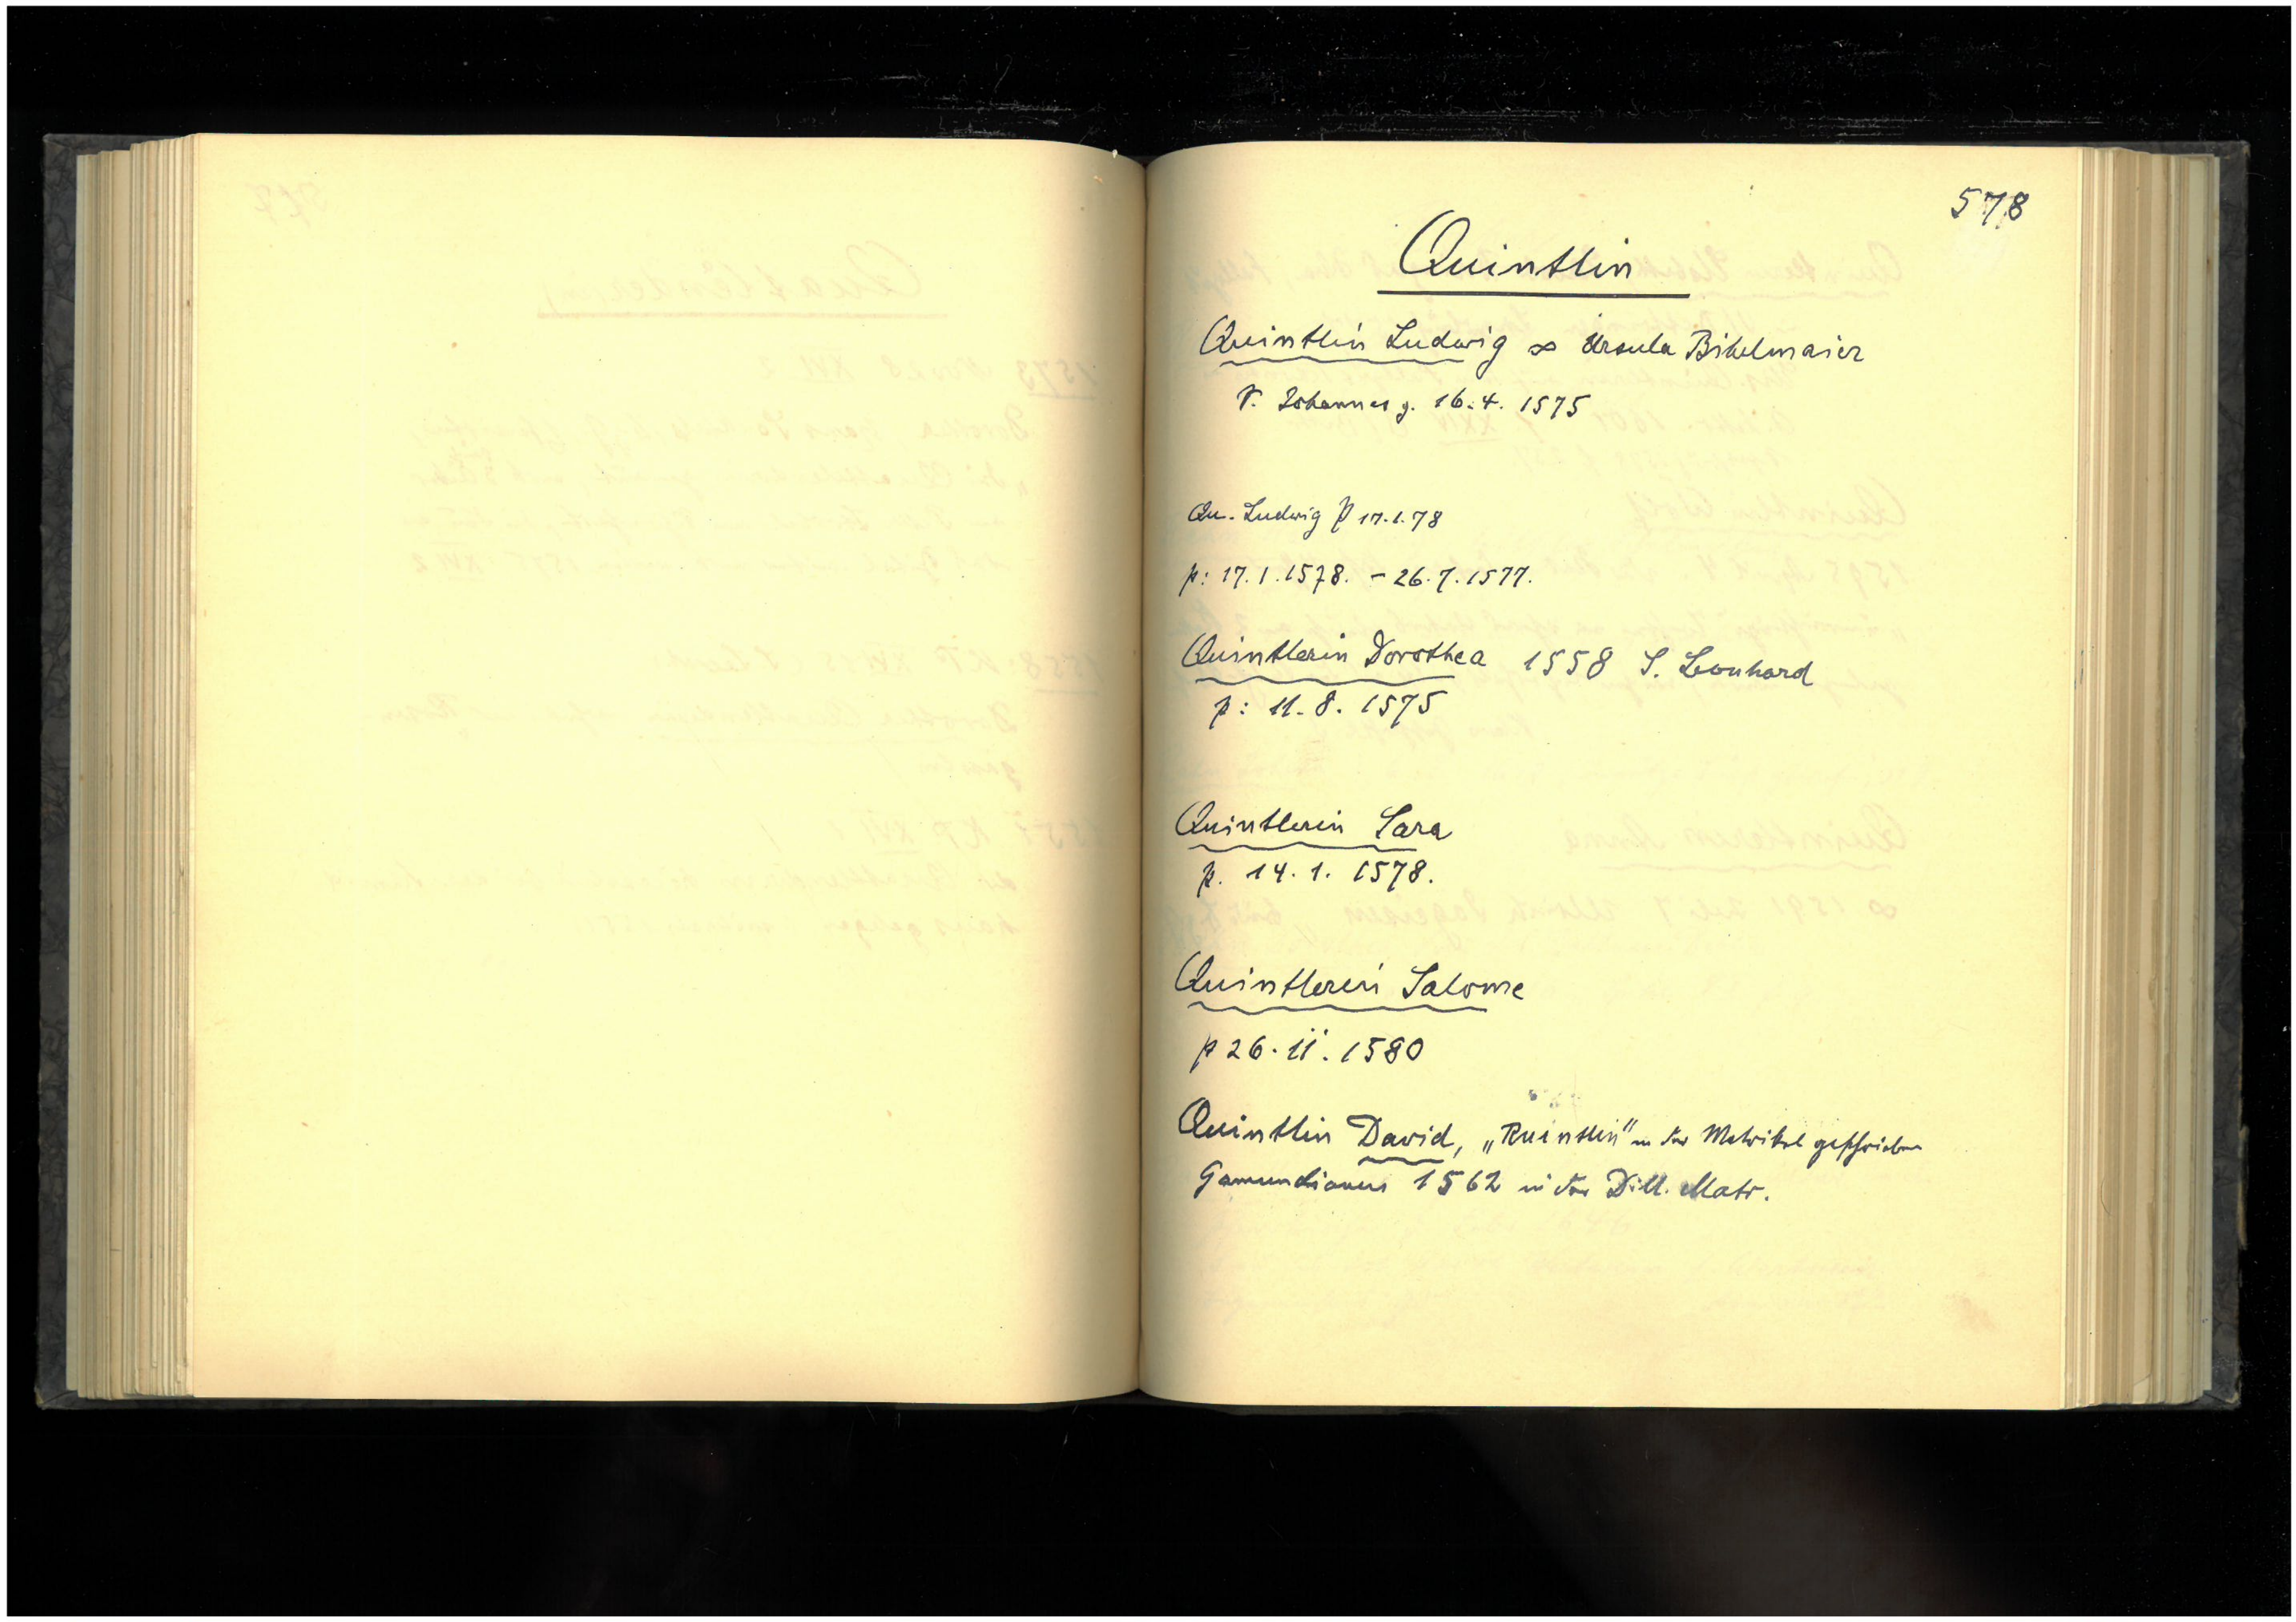 578
Quintlin
Quintlin Ludwig ∞ Ursula Bikelmaier
V. Johannes g. 16.4.1575
Qu. Ludwig P 17.1.78
p: 17.1.1578. - 26.7.1577.
Quintlerin Dorothea 1558 S. Leonhard
p: 11.8.1575
Quintlerin Sara
p. 14.1.1578.
Quintlerin Salome
p 26.11.1580
Quintlin David, „Ruintlin" in der Matrikel geschrieben
Gamundianus 1562 in der Dill. Matr.